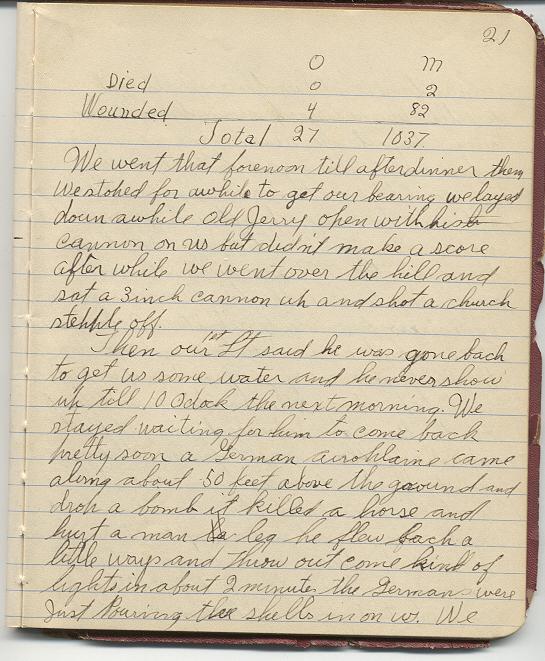 21
O M
Died 0 2
Wounded 4 82
Total 27 1037
We went that forenoon till afterdinner then
we stoped for awhile to get our bearing we layed
down awhile Old Jerry open with his
cannon on us but didn't make a score
after while we went over the hill and
sat a 3inch cannon up and shot a church
stepple off.
Then our 1st Lt said he was gone back
to get us some water and he never show
up till 10 Oclock the next morning. We
stayed waiting for him to come back
pretty soon a German airoplaine came
along about 50 feet above the ground and
drop a bomb it killed a horse and
hurt a man leg he flew back a
little ways and throw out come kind of
lights in about 2 minutes the Germans were
Just Pouring the shells in on us. We